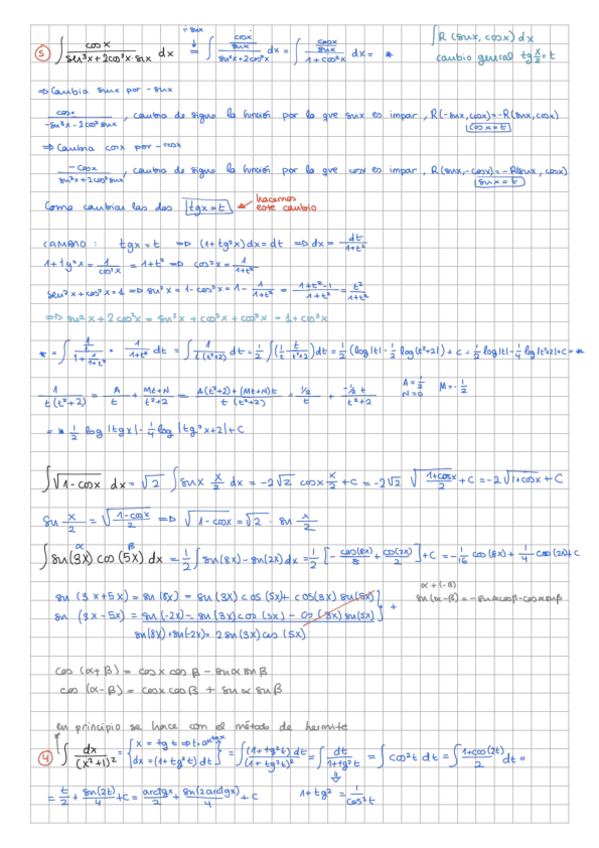 ∫R(senx, cosx) dx
÷ senx
5 ∫ cosx/(sen³x+2cos²x·senx) dx = ∫ (cosx/senx)/(sen²x+2cos²x) dx = ∫ (cosx/senx)/(1+cos²x) dx = *
cambio general tg x/2 = t
⇒ Cambia senx por -senx
cosx/(-sen³x-2cos²senx), cambia de signo la función por lo que senx es impar, R(-senx,cosx)=-R(senx,cosx)
cosx=t
⇒ Cambia cosx por -cosx
-cosx/(sen³x+2cos²senx), cambia de signo la función por lo que cosx es impar, R(senx,-cosx)=-R(senx, cosx)
senx=t
Como cambian las dos tgx=t ← hacemos este cambio
CAMBIO: tgx=t ⇒ (1+tg²x)dx=dt ⇒ dx= dt/(1+t²)
1+tg²x = 1/cos²x = 1+t² ⇒ cos²x = 1/(1+t²)
sen²x+cos²x=1 ⇒ sen²x=1-cos²x=1- 1/(1+t²) = (1+t²-1)/(1+t²) = t²/(1+t²)
⇒ sen²x+2cos²x = sen²x+cos²x+cos²x = 1+cos²x
* = ∫ (1/t)/(1+1/(1+t²)) · 1/(1+t²) dt = ∫ 1/(t(t²+2)) dt = 1/2 ∫(1/t - t/(t²+2))dt = 1/2 (log|t|-1/2 log(t²+2)) + c = 1/2 log|t|-1/4 log|t²+2|+C = *
1/(t(t²+2)) = A/t + (Mt+N)/(t²+2) = (A(t²+2)+(Mt+N)t)/(t(t²+2)) = (1/2)/t + (-1/2 t)/(t²+2) A=1/2 N=0 M=-1/2
= * 1/2 log|tgx|-1/4 log|tg²x+2|+C
∫√(1-cosx) dx = √2 ∫ sen x/2 dx = -2√2 cos x/2 + C = -2√2 √((1+cosx)/2) + C = -2√(1+cosx) + C
sen x/2 = √((1-cosx)/2) ⇒ √(1-cosx) = √2 · sen x/2
α β
∫sen(3x)cos(5x) dx = 1/2 ∫ sen(8x)-sen(2x)dx = 1/2 [- cos(8x)/8 + cos(2x)/2] + C = -1/16 cos(8x) + 1/4 cos(2x)+C
α+(-β)
sen(3x+5x) = sen(8x) = sen(3x)cos(5x)+cos(3x)sen(5x) sen(α-β)=-senαcosβ-cosαsenβ
sen(3x-5x) = sen(-2x) = sen(3x)cos(5x) - cos(3x)sen(5x) +
sen(8x)+sen(-2x)= 2sen(3x)cos(5x)
cos(α+β) = cosx cosβ - senα senβ
cos(α-β) = cosx cosβ + senα senβ
en principio se hace con el método de hermite
4 ∫ dx/(x²+1)² = {x = tg t ⇒ t=arctgx dx=(1+tg²t)dt} = ∫ (1+tg²t)dt/(1+tg²t)² = ∫ dt/(1+tg²t) = ∫cos²t dt = ∫ (1+cos(2t))/2 dt =
= t/2 + sen(2t)/4 + C = arctgx/2 + sen(2arctgx)/4 + C 1+tg² = 1/cos²t